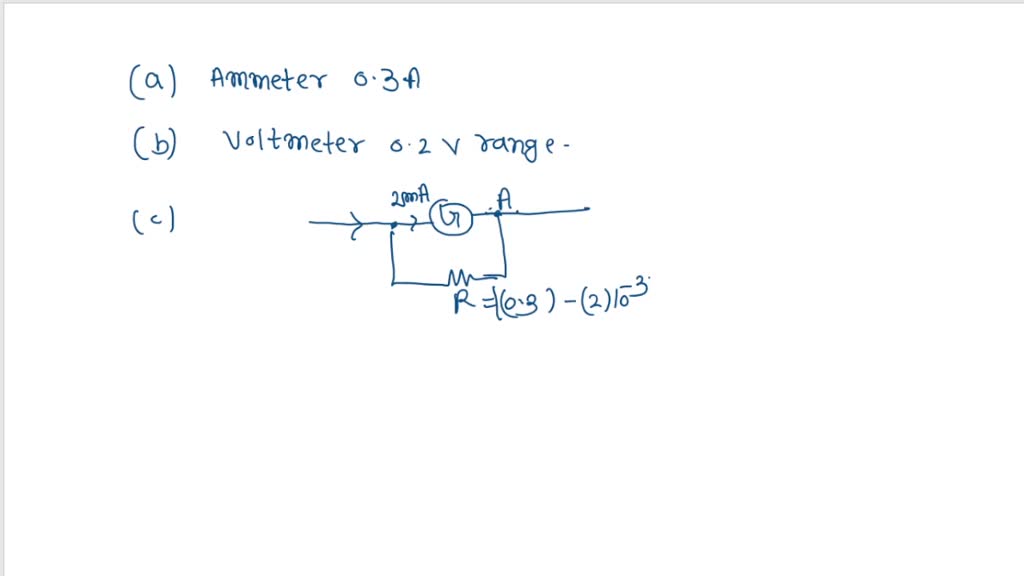 (a) Ammeter 0.3A
(b) Voltmeter 0.2 V range.
(c) 2mA G A
R = (0.3) - (2)10⁻³